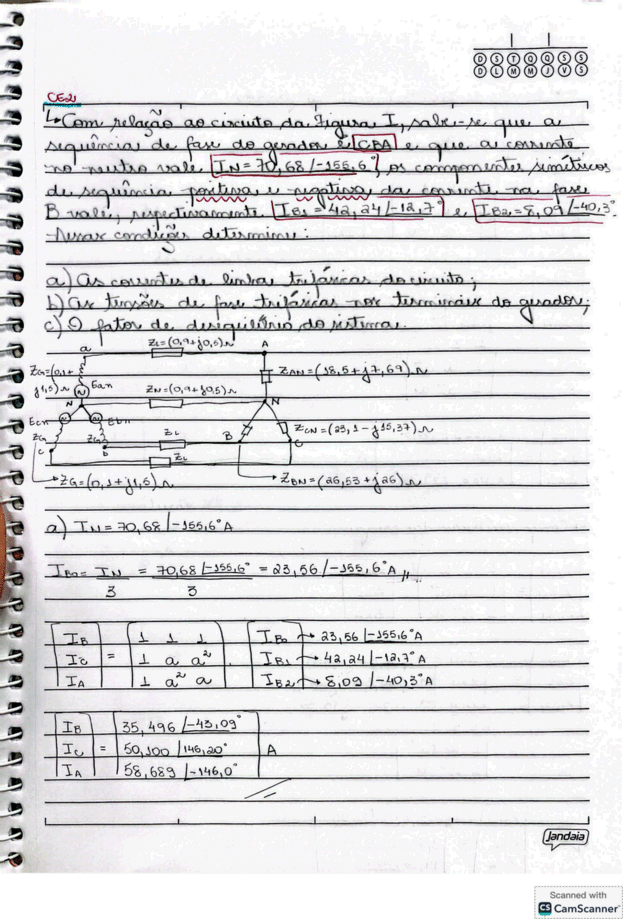 D S T Q Q S S
D L M M J V S
CE2
↳ Com relação ao circuito da Figura I, sabe-se que a
sequência de fase do gerador é CBA e que a corrente
no neutro vale IN = 70,68 /-155,6° os componentes simétricos
de sequência positiva e negativa da corrente na fase
B vale, respectivamente IB1 = 42,24 /-12,7° e IB2 = 8,09 /-40,3°
Nessas condições determine:
a) As correntes de linha trifásicas do circuito;
b) As tensões de fase trifásicas nos terminais do gerador;
c) O fator de desequilíbrio do sistema.
a ZL=(0,9+j0,5)Ω A
ZG=(0,1+
j1,5)Ω Ean ZAN=(18,5+j7,69)Ω
N ZN=(0,9+j0,5)Ω N
Ecn Ebn ZCN=(23,1-j15,37)Ω
ZG ZG ZL B C
c b ZL
ZG=(0,1+j1,5) ZBN=(26,53+j26)Ω
a) IN=70,68 /-155,6° A
IB0 = IN = 70,68 /-155,6° = 23,56 /-155,6° A //
3 3
IB 1 1 1 IB0 → 23,56 /-155,6° A
IC = 1 a a² . IB1 → 42,24 /-12,7° A
IA 1 a² a IB2 → 8,09 /-40,3° A
IB 35,496 /-43,09°
IC = 50,100 /146,20° A
IA 58,689 /-146,0°
Jandaia
Scanned with
CS CamScanner